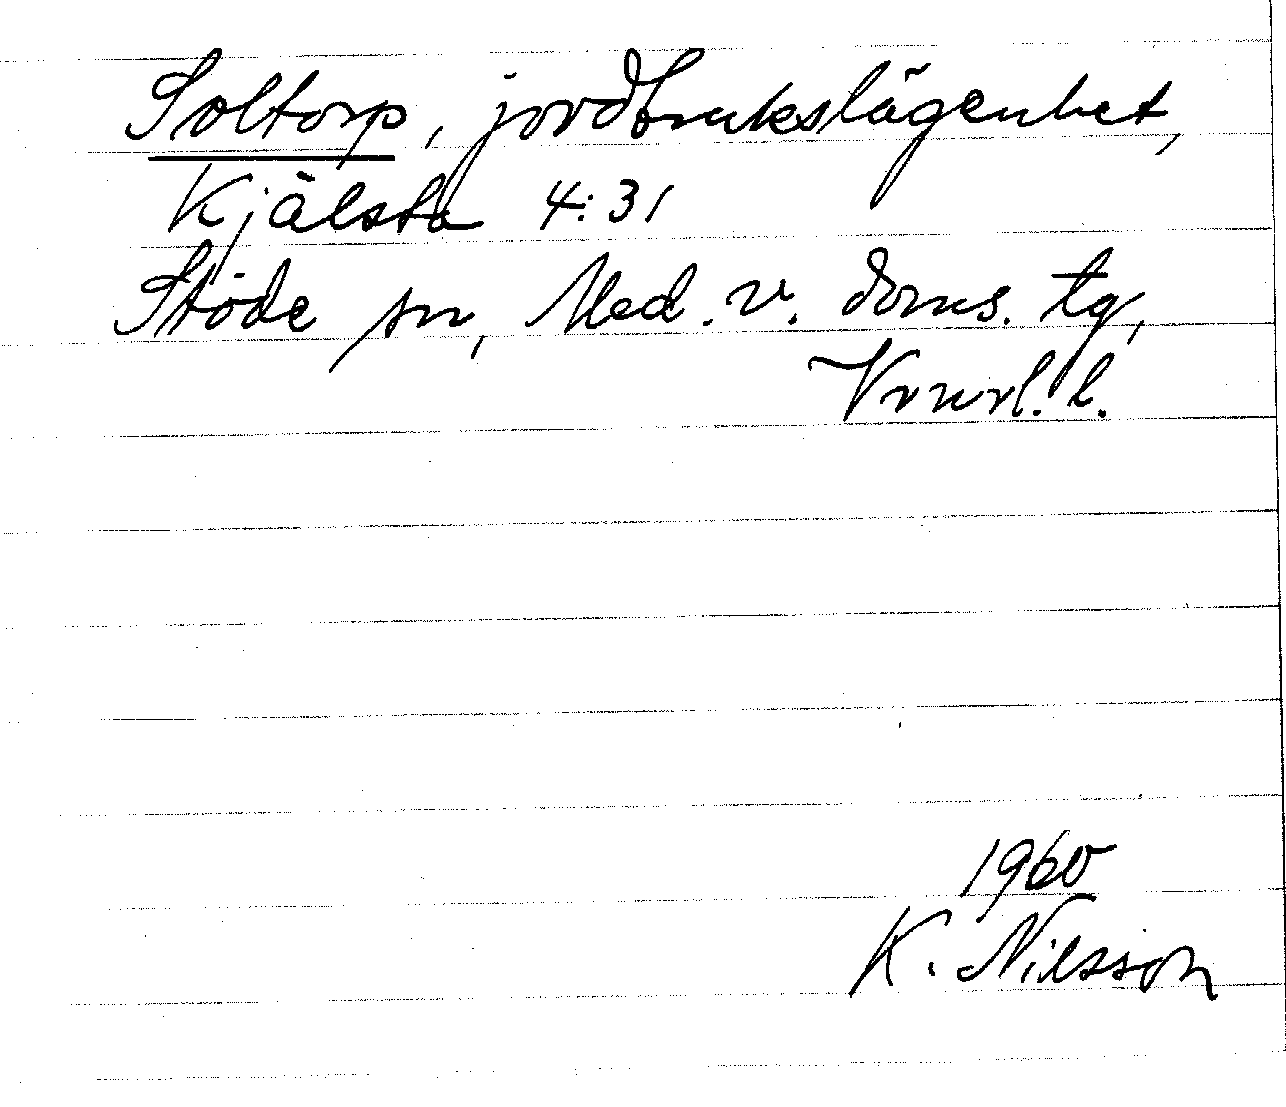 Soltorp, jordbrukslägenhet,
Kjälsta 4:31
Stöde sn, Med. v. doms. tg,
Vrnrl. l.
1960
K. Nilsson